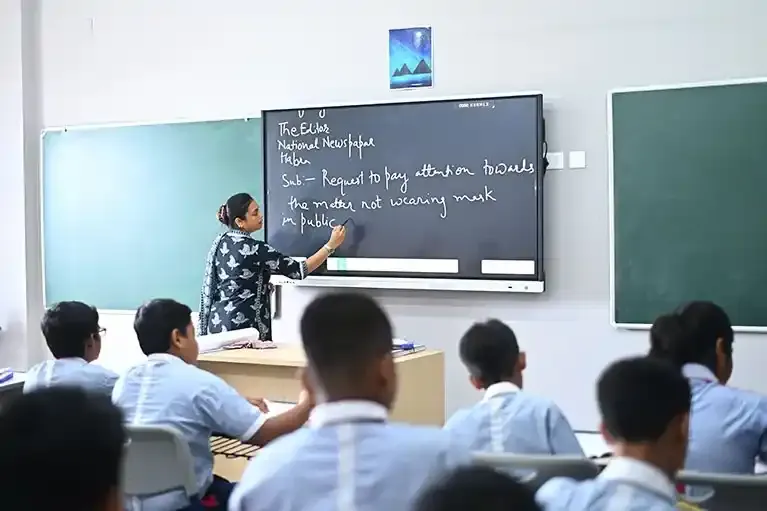 The Editor
National Newspapar
Sub:- Request to pay attention towards
the mater not wearing mask
in public